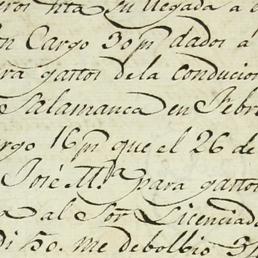 su llegada a
Cargo 30 p.s dados á
para gastos de la conducion
Salamanca en Febre
Cargo 16 p.s que el 26 de
José M.ª para gastos
al Sor Licenciado
di 50. me debolbio 3